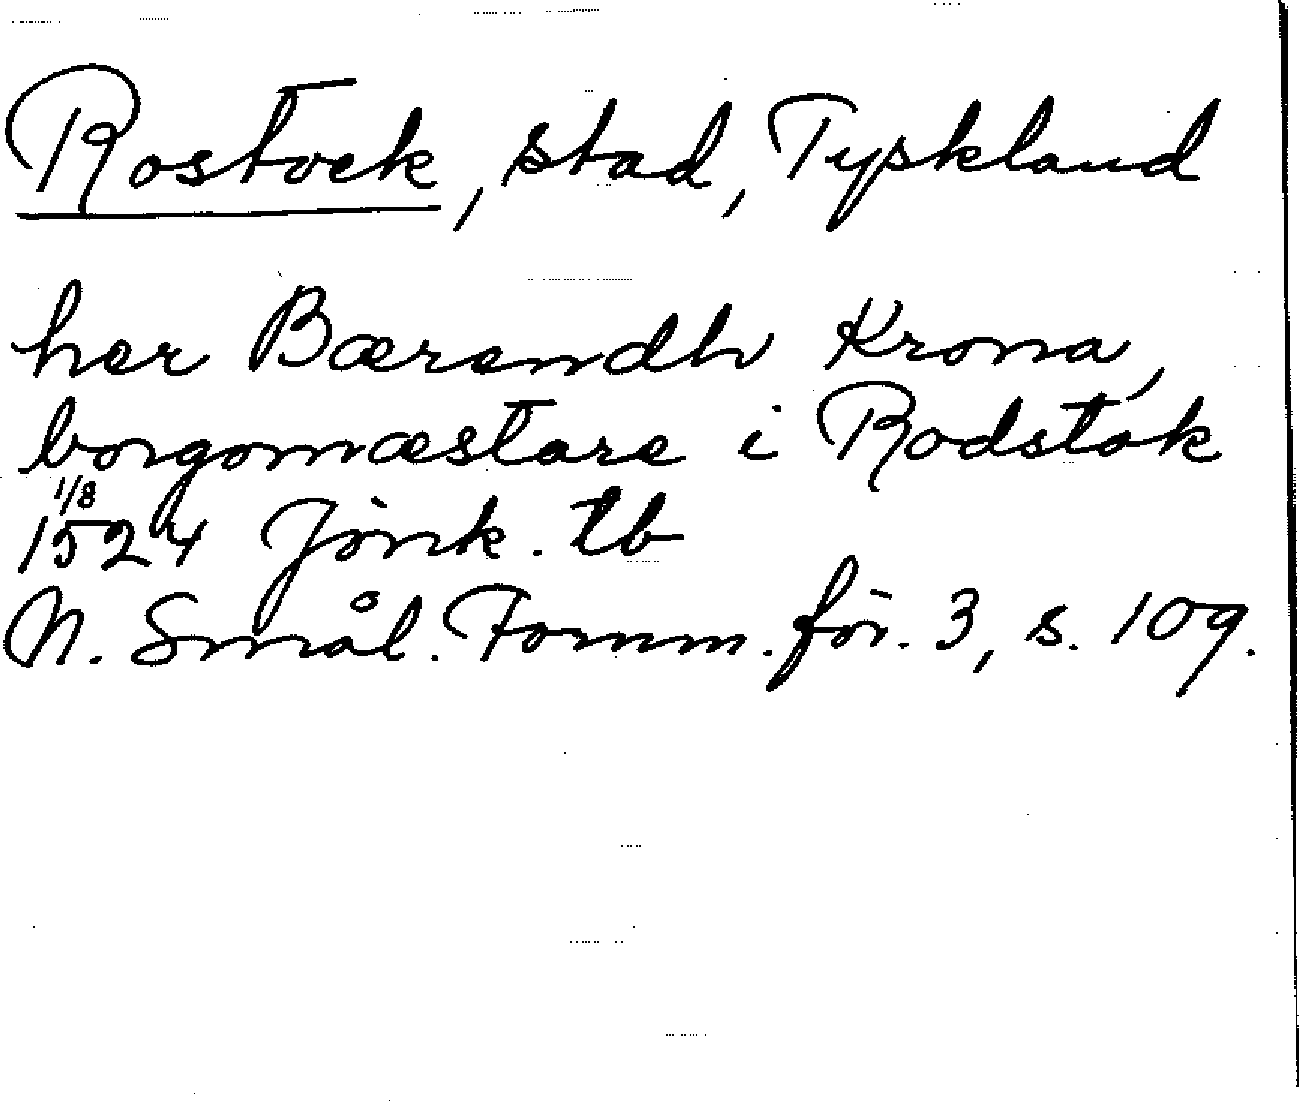 Rostock, stad, Tyskland
her Bærendh Krona,
borgomæstare i Rodstok
1/8
1524 Jönk. tb
N. Smål. Fornm. för. 3, s. 109.